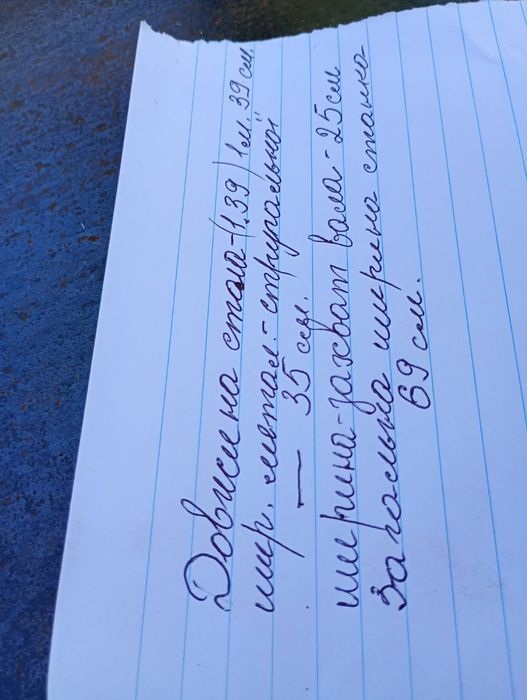 Довжина стола-(1.39) 1м. 39 см.
шир. метал.-стругальної
— 35 см.
ширина-захват вала-25см
Загальна ширина станка
69 см.